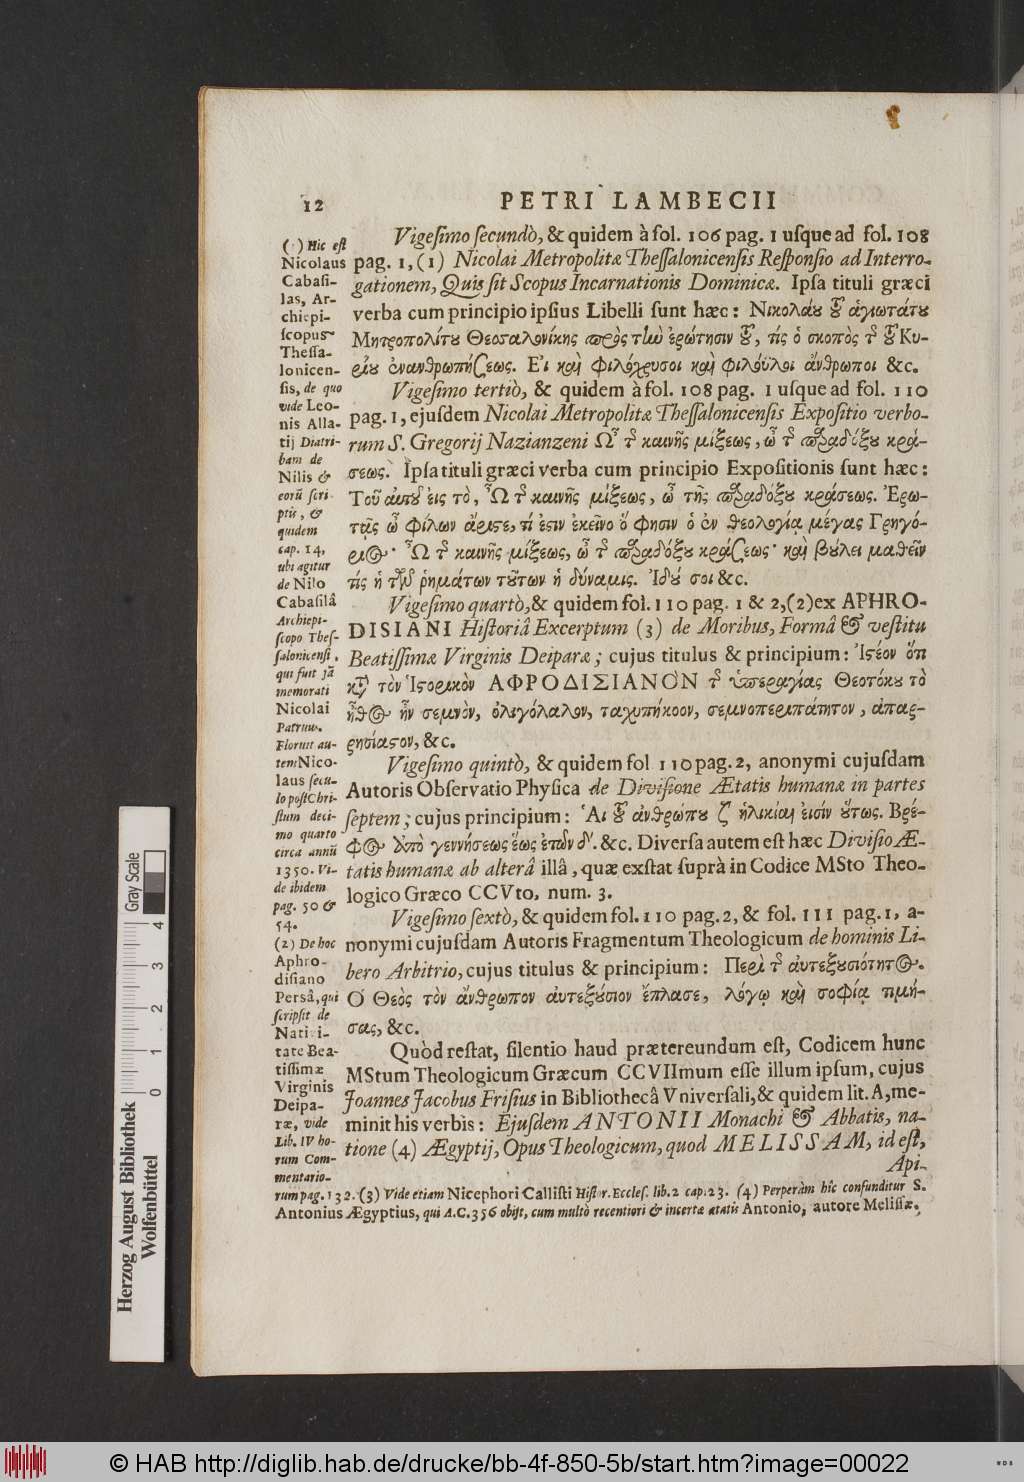 12
PETRI LAMBECII
Vigesimo secundò, & quidem à fol. 106 pag. 1 usque ad fol. 108
pag. 1, (1) Nicolai Metropolitæ Thessalonicensis Responsio ad Interro-
gationem, Quis sit Scopus Incarnationis Dominicæ. Ipsa tituli græci
verba cum principio ipsius Libelli sunt hæc: Νικολάου τοῦ ἁγιωτάτου
Μητροπολίτου Θεσσαλονίκης πρὸς τὴν ἐρώτησιν τοῦ, τίς ὁ σκοπὸς τῆς τοῦ Κυ-
ρίου ἐνανθρωπήσεως. Εἰ καὶ φιλόχρυσοι καὶ φιλόϋλοι ἄνθρωποι &c.
Vigesimo tertiò, & quidem à fol. 108 pag. 1 usque ad fol. 110
pag. 1, ejusdem Nicolai Metropolitæ Thessalonicensis Expositio verbo-
rum S. Gregorij Nazianzeni Ὢ τῆς καινῆς μίξεως, ὢ τῆς παραδόξου κρά-
σεως. Ipsa tituli græci verba cum principio Expositionis sunt hæc:
Τοῦ αὐτοῦ εἰς τὸ, Ὢ τῆς καινῆς μίξεως, ὢ τῆς παραδόξου κράσεως. Ἐρω-
τᾷς ὦ φίλων ἄριστε, τί ἐστιν ἐκεῖνο ὅ φησιν ὁ ἐν θεολογίᾳ μέγας Γρηγό-
ριος· Ὢ τῆς καινῆς μίξεως, ὢ τῆς παραδόξου κράσεως· καὶ βούλει μαθεῖν
τίς ἡ τῶν ῥημάτων τούτων ἡ δύναμις. Ἰδού σοι &c.
Vigesimo quartò, & quidem fol. 110 pag. 1 & 2, (2) ex APHRO-
DISIANI Historiâ Excerptum (3) de Moribus, Formâ & vestitu
Beatissimæ Virginis Deiparæ; cujus titulus & principium: Ἰστέον ὅτι
κατὰ τὸν Ἱστορικὸν ΑΦΡΟΔΙΣΙΑΝΟΝ τῆς ὑπεραγίας Θεοτόκου τὸ
ἦθος ἦν σεμνὸν, ὀλιγόλαλον, ταχυπήκοον, σεμνοπεριπάτητον, ἀπαρ-
ρησίαστον, &c.
Vigesimo quintò, & quidem fol 110 pag. 2, anonymi cujusdam
Autoris Observatio Physica de Divisione Ætatis humanæ in partes
septem; cujus principium: Ἁι τοῦ ἀνθρώπου ζ ἡλικίαι εἰσίν οὕτως. Βρέ-
φος ἀπὸ γεννήσεως ἕως ἐτῶν δʹ. &c. Diversa autem est hæc Divisio Æ-
tatis humanæ ab alterâ illâ, quæ exstat suprà in Codice MSto Theo-
logico Græco CCVto, num. 3.
Vigesimo sextò, & quidem fol. 110 pag. 2, & fol. 111 pag. 1, a-
nonymi cujusdam Autoris Fragmentum Theologicum de hominis Li-
bero Arbitrio, cujus titulus & principium: Περὶ τῆς αὐτεξουσιότητος.
Ὁ Θεὸς τὸν ἄνθρωπον αὐτεξούσιον ἔπλασε, λόγῳ καὶ σοφίᾳ τιμή-
σας, &c.
Quòd restat, silentio haud prætereundum est, Codicem hunc
MStum Theologicum Græcum CCVIImum esse illum ipsum, cujus
Joannes Jacobus Frisius in Bibliothecâ Vniversali, & quidem lit. A, me-
minit his verbis: Ejusdem ANTONII Monachi & Abbatis, na-
tione (4) Ægyptij, Opus Theologicum, quod MELISSAM, id est,
Api-
(1) Hic est
Nicolaus
Cabasi-
las, Ar-
chiepi-
scopus
Thessa-
lonicen-
sis, de quo
vide Leo-
nis Alla-
tij Diatri-
bam de
Nilis &
eorũ scri-
ptis, &
quidem
cap. 14,
ubi agitur
de Nilo
Cabasilâ
Archiepi-
scopo Thes-
salonicensi,
qui fuit jã
memorati
Nicolai
Patruus.
Floruit au-
tem Nico-
laus secu-
lo post Chri-
stum deci-
mo quarto
circa annũ
1350. Vi-
de ibidem
pag. 50 &
54.
(2) De hoc
Aphro-
disiano
Persâ, qui
scripsit de
Nativi-
tate Bea-
tissimæ
Virginis
Deipa-
ræ, vide
Lib. IV ho-
rum Com-
mentario-
rum pag. 132. (3) Vide etiam Nicephori Callisti Histor. Eccles. lib. 2 cap. 23. (4) Perperàm hîc confunditur S.
Antonius Ægyptius, qui A.C. 356 obijt, cum multò recentiori & incertæ ætatis Antonio, autore Melissæ.
Gray Scale
0 1 2 3 4
Herzog August Bibliothek
Wolfenbüttel
© HAB http://diglib.hab.de/drucke/bb-4f-850-5b/start.htm?image=00022